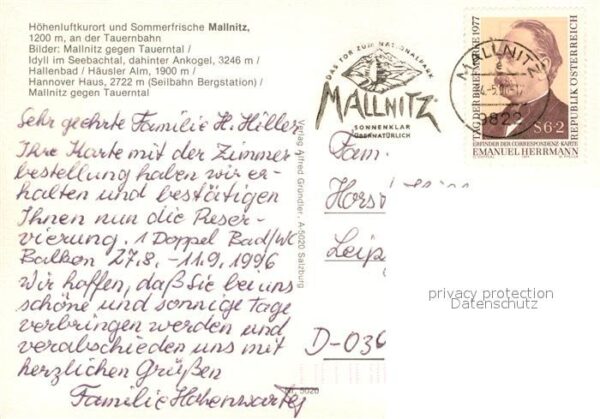 Höhenluftkurort und Sommerfrische Mallnitz,
1200 m, an der Tauernbahn
Bilder: Mallnitz gegen Tauerntal /
Idyll im Seebachtal, dahinter Ankogel, 3246 m /
Hallenbad / Häusler Alm, 1900 m /
Hannover Haus, 2722 m (Seilbahn Bergstation) /
Mallnitz gegen Tauerntal
Sehr geehrte Familie H. Hiller
Ihre Karte mit der Zimmer
bestellung haben wir er-
halten und bestätigen
Ihnen nun die Reser-
vierung. 1 Doppel Bad/WC
Balkon 27.8. - 11.9.1996
Wir hoffen, daß Sie bei uns
schöne und sonnige Tage
verbringen werden und
verabschieden uns mit
herzlichen Grüßen
Familie Hohenwarter
Verlag Alfred Gründler, A-5020 Salzburg
5020
DAS TOR ZUM NATIONALPARK
MALLNITZ
SONNENKLAR
ÜBERNATÜRLICH
MALLNITZ
9822
TAG DER BRIEFMARKE 1977
REPUBLIK ÖSTERREICH
S6+2
ERFINDER DER CORRESPONDENZ-KARTE
EMANUEL HERRMANN
Fam.
Hors
Leip
D-036
privacy protection
Datenschutz